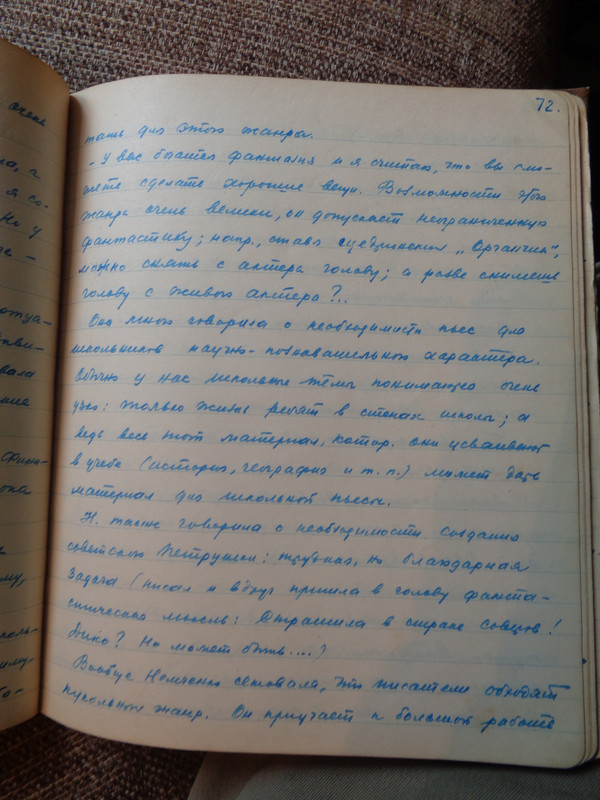 очень
я со-
Но у
вала
ние
она
му,
72.
тать для этого жанра.
- У вас богатая фантазия и я считаю, что вы смо-
жете сделать хорошие вещи. Возможности этого
жанра очень велики, он допускает неограниченную
фантастику; напр., ставя щедринский „Органчик“,
можно снять с актера голову; а разве снимешь
голову с живого актера?..
Она много говорила о необходимости пьес для
школьников научно-познавательного характера.
Обычно у нас школьные темы понимаются очень
узко: только жизнь ребят в стенах школы; а
ведь весь тот материал, котор. они усваивают
в учебе (история, география и т.п.) может дать
материал для школьной пьесы.
Н. также говорила о необходимости создания
советского Петрушки: трудная, но благодарная
задача (писал и вдруг пришла в голову фанта-
стическая мысль: Страшила в стране советов!
Дико? Но может быть....)
Вообще Немченко сетовала, что писатели обходят
кукольный жанр. Он приучает к большой работе